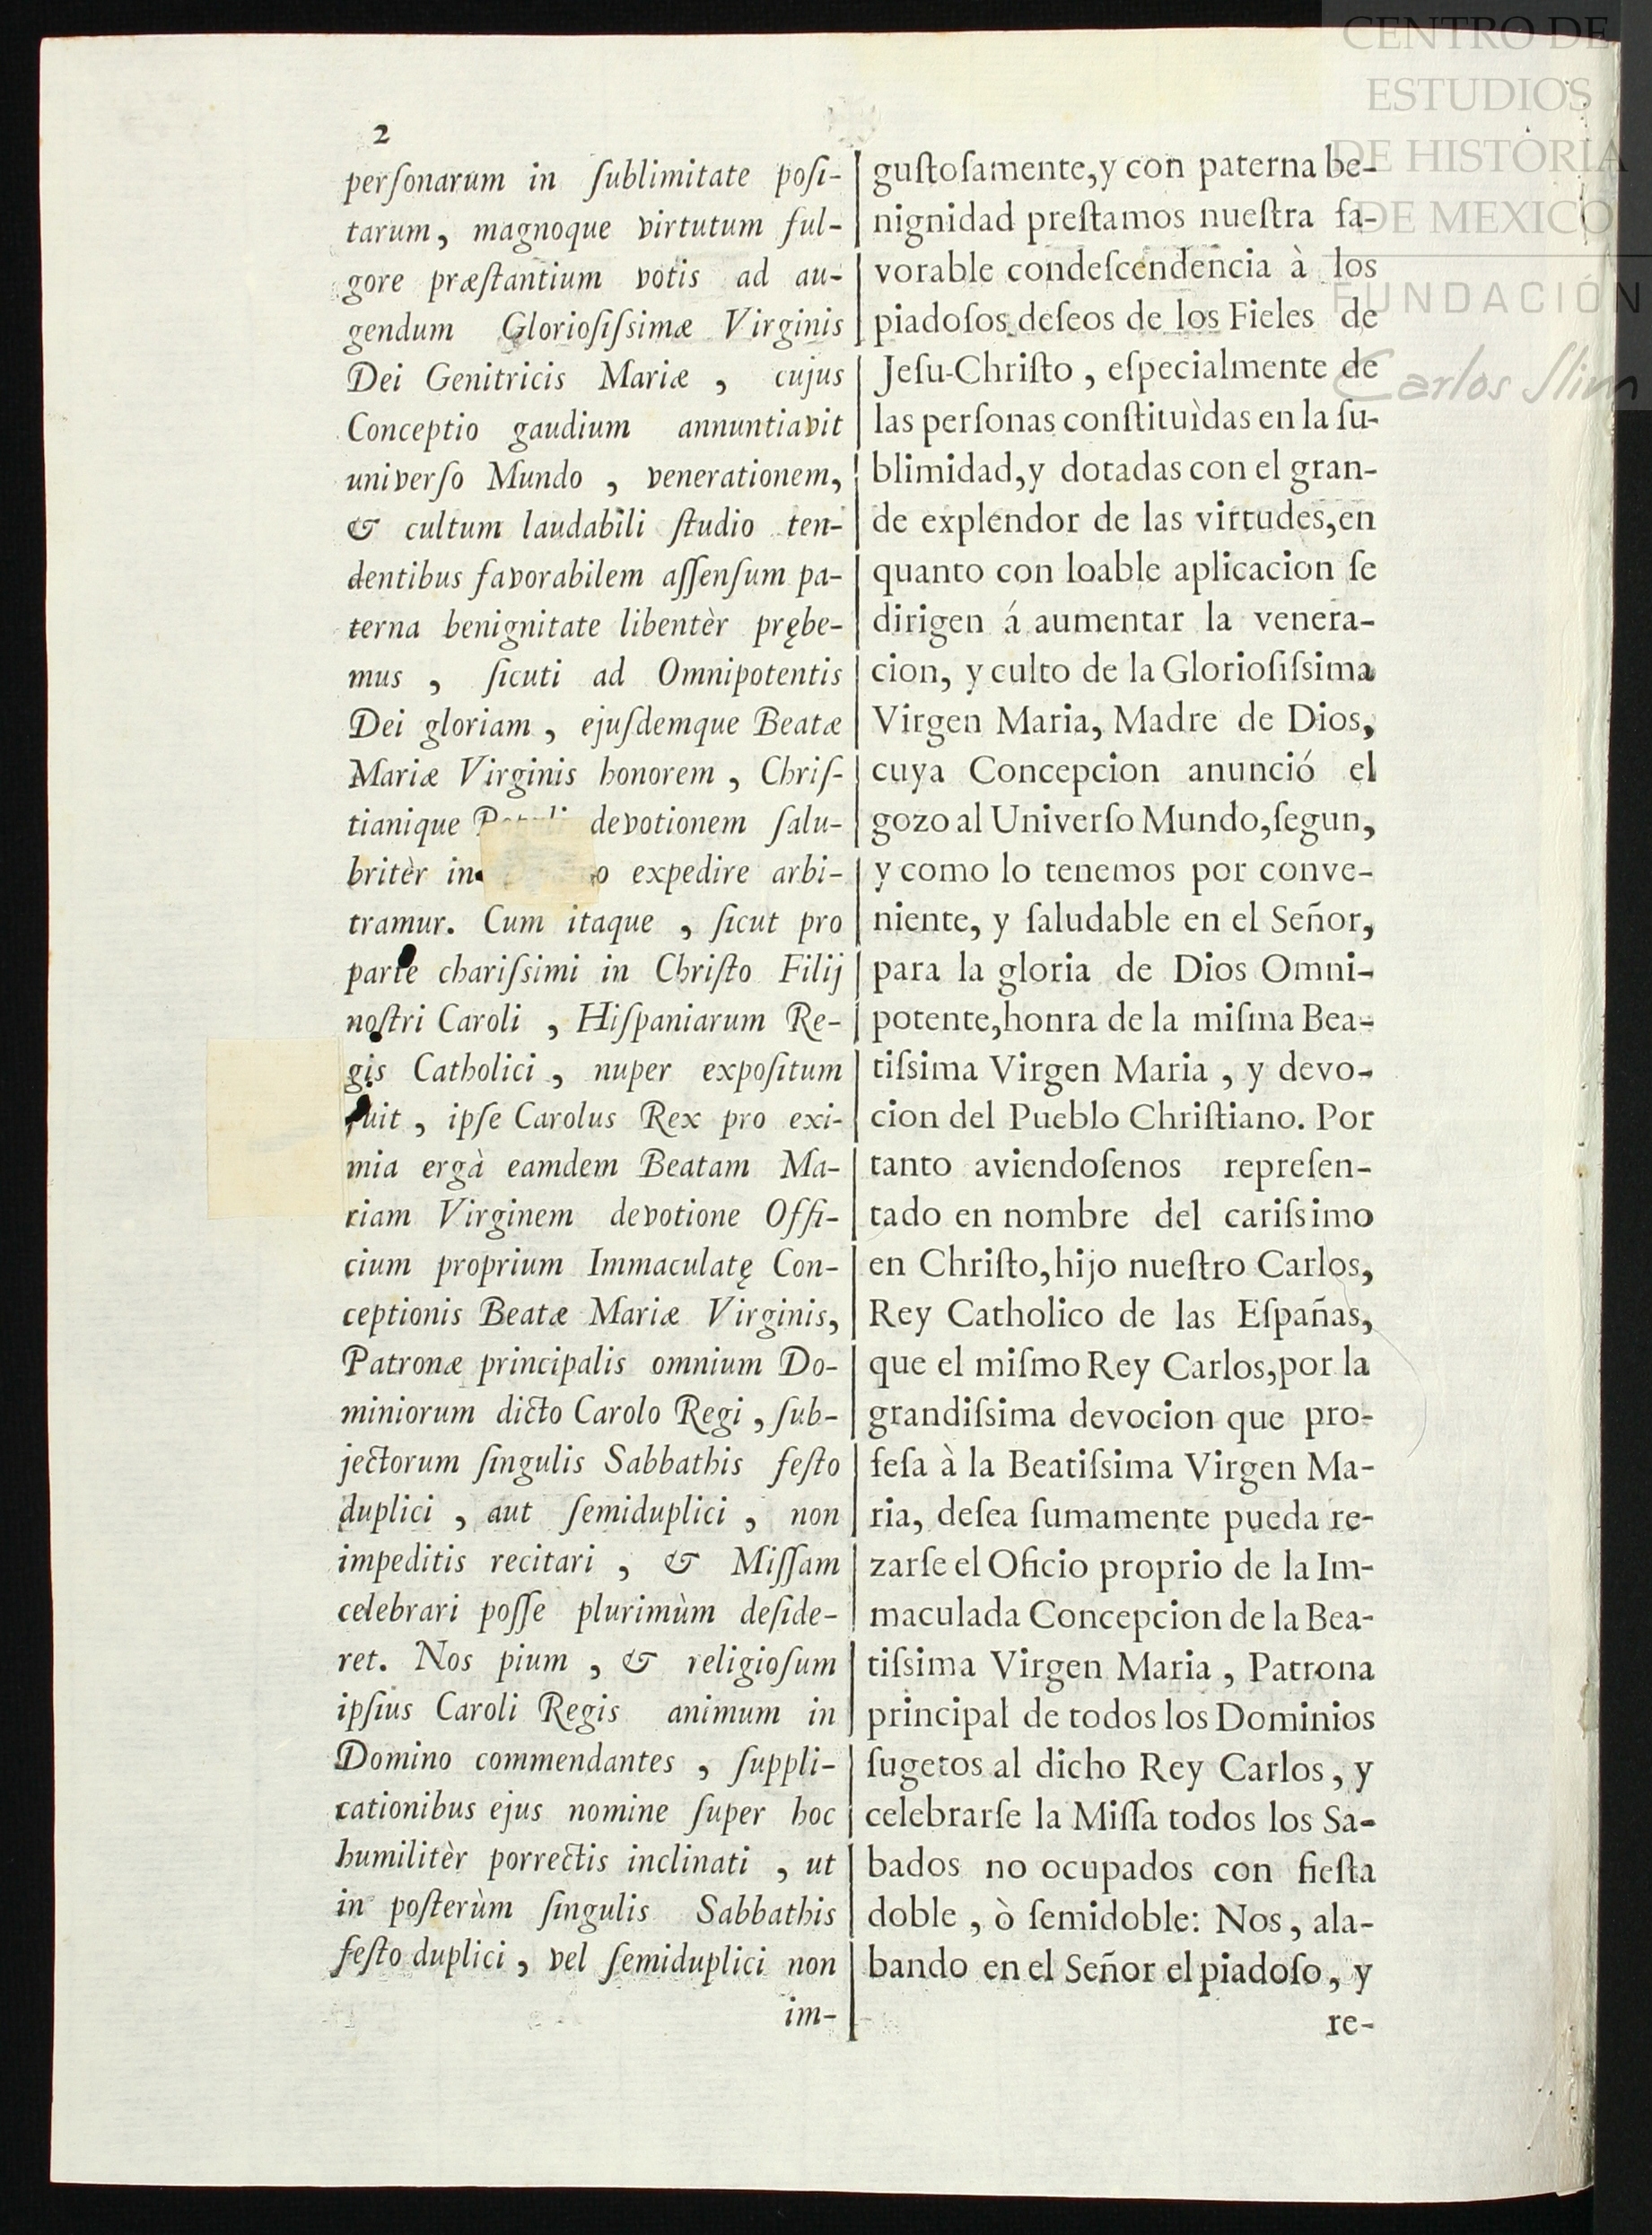 2
perſonarum in ſublimitate poſi-
tarum, magnoque virtutum ful-
gore præſtantium votis ad au-
gendum Glorioſiſsimæ Virginis
Dei Genitricis Mariæ, cujus
Conceptio gaudium annuntiavit
univerſo Mundo, venerationem,
& cultum laudabili ſtudio ten-
dentibus favorabilem aſſenſum pa-
terna benignitate libentèr prębe-
mus, ſicuti ad Omnipotentis
Dei gloriam, ejuſdemque Beatæ
Mariæ Virginis honorem, Chriſ-
tianique devotionem ſalu-
britèr in expedire arbi-
tramur. Cum itaque, ſicut pro
parte chariſsimi in Chriſto Filij
noſtri Caroli, Hiſpaniarum Re-
gis Catholici, nuper expoſitum
fuit, ipſe Carolus Rex pro exi-
mia ergà eamdem Beatam Ma-
riam Virginem devotione Offi-
cium proprium Immaculatę Con-
ceptionis Beatæ Mariæ Virginis,
Patronæ principalis omnium Do-
miniorum dicto Carolo Regi, ſub-
jectorum ſingulis Sabbathis feſto
duplici, aut ſemiduplici, non
impeditis recitari, & Miſſam
celebrari poſſe plurimùm deſide-
ret. Nos pium, & religioſum
ipſius Caroli Regis animum in
Domino commendantes, ſuppli-
cationibus ejus nomine ſuper hoc
humilitèr porrectis inclinati, ut
in poſterùm ſingulis Sabbathis
feſto duplici, vel ſemiduplici non
im-
guſtoſamente, y con paterna be-
nignidad preſtamos nueſtra fa-
vorable condeſcendencia à los
piadoſos deſeos de los Fieles de
Jeſu-Chriſto, eſpecialmente de
las perſonas conſtituìdas en la ſu-
blimidad, y dotadas con el gran-
de explendor de las virtudes, en
quanto con loable aplicacion ſe
dirigen á aumentar la venera-
cion, y culto de la Glorioſiſsima
Virgen Maria, Madre de Dios,
cuya Concepcion anunció el
gozo al Univerſo Mundo, ſegun,
y como lo tenemos por conve-
niente, y ſaludable en el Señor,
para la gloria de Dios Omni-
potente, honra de la miſma Bea-
tiſsima Virgen Maria, y devo-
cion del Pueblo Chriſtiano. Por
tanto aviendoſenos repreſen-
tado en nombre del cariſsimo
en Chriſto, hijo nueſtro Carlos,
Rey Catholico de las Eſpañas,
que el miſmo Rey Carlos, por la
grandiſsima devocion que pro-
feſa à la Beatiſsima Virgen Ma-
ria, deſea ſumamente pueda re-
zarſe el Oficio proprio de la Im-
maculada Concepcion de la Bea-
tiſsima Virgen Maria, Patrona
principal de todos los Dominios
ſugetos al dicho Rey Carlos, y
celebrarſe la Miſſa todos los Sa-
bados no ocupados con fieſta
doble, ò ſemidoble: Nos, ala-
bando en el Señor el piadoſo, y
re-
CENTRO DE
ESTUDIOS
DE HISTORIA
DE MEXICO
FUNDACIÓN
Carlos Slim